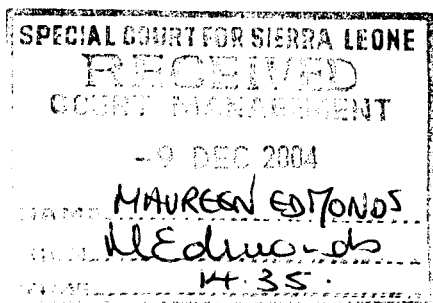 SPECIAL COURT FOR SIERRA LEONE
RECEIVED
COURT MANAGEMENT
-9 DEC 2004
NAME MAUREEN EDMONDS
SIGN MEdmonds
TIME 14.35.